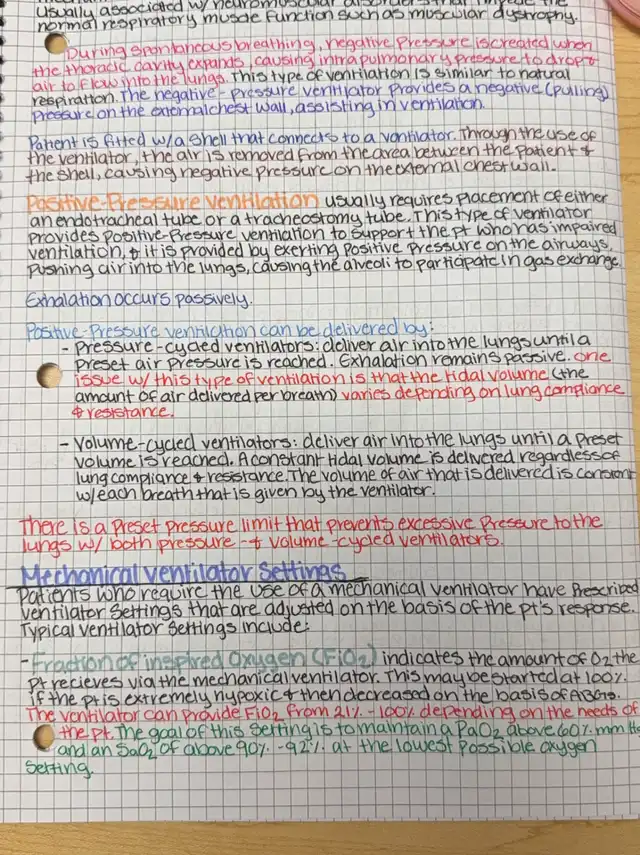 usually associated w/ neuromuscular disorders that impede the
normal respiratory muscle function such as muscular dystrophy.
During spontaneous breathing, negative pressure is created when
the thoracic cavity expands, causing intrapulmonary pressure to drop &
air to flow into the lungs. This type of ventilation is similar to natural
respiration. The negative-pressure ventilator provides a negative (pulling)
pressure on the external chest wall, assisting in ventilation.
Patient is fitted w/ a shell that connects to a ventilator. Through the use of
the ventilator, the air is removed from the area between the patient &
the shell, causing negative pressure on the external chest wall.
Positive-Pressure Ventilation usually requires placement of either
an endotracheal tube or a tracheostomy tube. This type of ventilator
provides positive-pressure ventilation to support the pt who has impaired
ventilation, & it is provided by exerting positive pressure on the airways,
pushing air into the lungs, causing the alveoli to participate in gas exchange.
Exhalation occurs passively.
Positive-Pressure ventilation can be delivered by:
- Pressure-cycled ventilators: deliver air into the lungs until a
preset air pressure is reached. Exhalation remains passive. one
issue w/ this type of ventilation is that the tidal volume (the
amount of air delivered per breath) varies depending on lung compliance
& resistance.
- Volume-cycled ventilators: deliver air into the lungs until a preset
volume is reached. A constant tidal volume is delivered regardless of
lung compliance & resistance. The volume of air that is delivered is constant
w/ each breath that is given by the ventilator.
There is a preset pressure limit that prevents excessive pressure to the
lungs w/ both pressure- & volume-cycled ventilators.
Mechanical Ventilator Settings
Patients who require the use of a mechanical ventilator have prescribed
ventilator settings that are adjusted on the basis of the pt's response.
Typical ventilator settings include:
- Fraction of inspired Oxygen (FiO2) indicates the amount of O2 the
pt recieves via the mechanical ventilator. This may be started at 100%
if the pt is extremely hypoxic & then decreased on the basis of ABGs.
The ventilator can provide FiO2 from 21% - 100% depending on the needs of
the pt. The goal of this setting is to maintain a PaO2 above 60% mm Hg
and an SaO2 of above 90% - 92% at the lowest possible oxygen
setting.